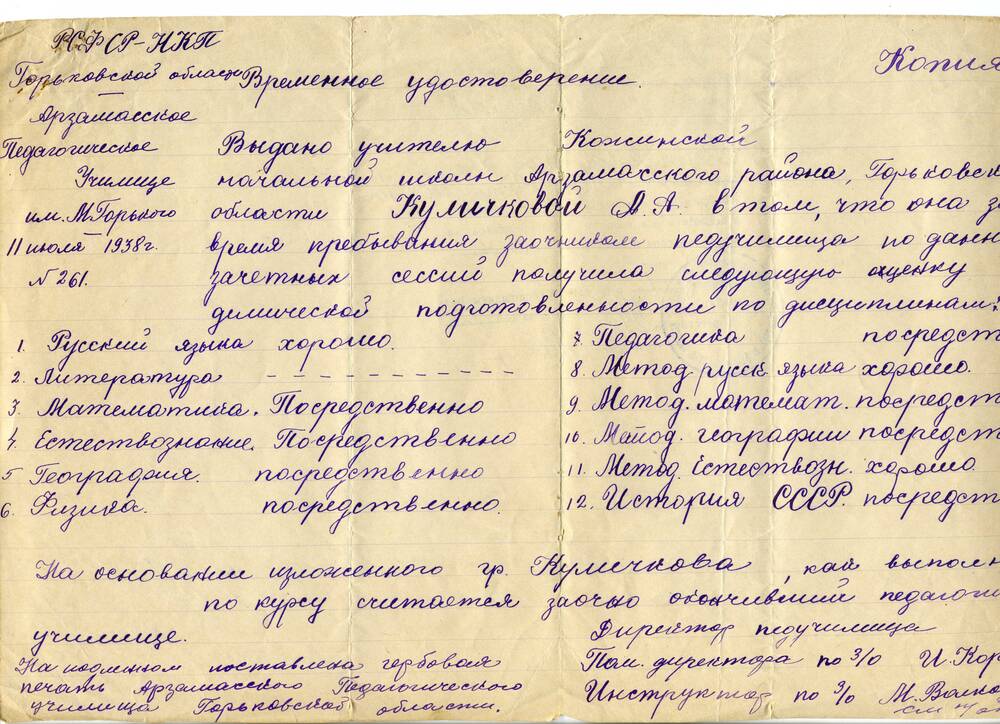 РСФСР-НКП
Горьковской области Временное удостоверение. Копия
Арзамасское
Педагогическое Выдано учителю Кожинской
Училище начальной школы Арзамасского района, Горьковск
им. М.Горького области Куличковой А.А. в том, что она за
11 июля 1938г. время пребывания заочником педучилища по данн
N 261. зачетных сессий получила следующую оценку
демической подготовленности по дисциплинам:
1. Русский языка хорошо.
2. Литература - - - - - - - - - - - -
3. Математика. Посредственно
4. Естествознание. Посредственно
5 География. посредственно
6. Физика. посредственно.
7. Педагогика посредст
8. Метод. русск. языка хорошо.
9. Метод. математ. посредст
10. Метод. географии посредст
11. Метод. Естествозн. хорошо
12. История СССР. посредст
На основании изложенного гр. Куличкова, как выполн
по курсу считается заочно окончивший педагоги
училище.
Директор педучилища
Пом. директора по З/о И. Кор
Инструктор по З/о М. Волко
На подлинном поставлена гербовая
печать Арзамасского Педагогического
училища Горьковской области.